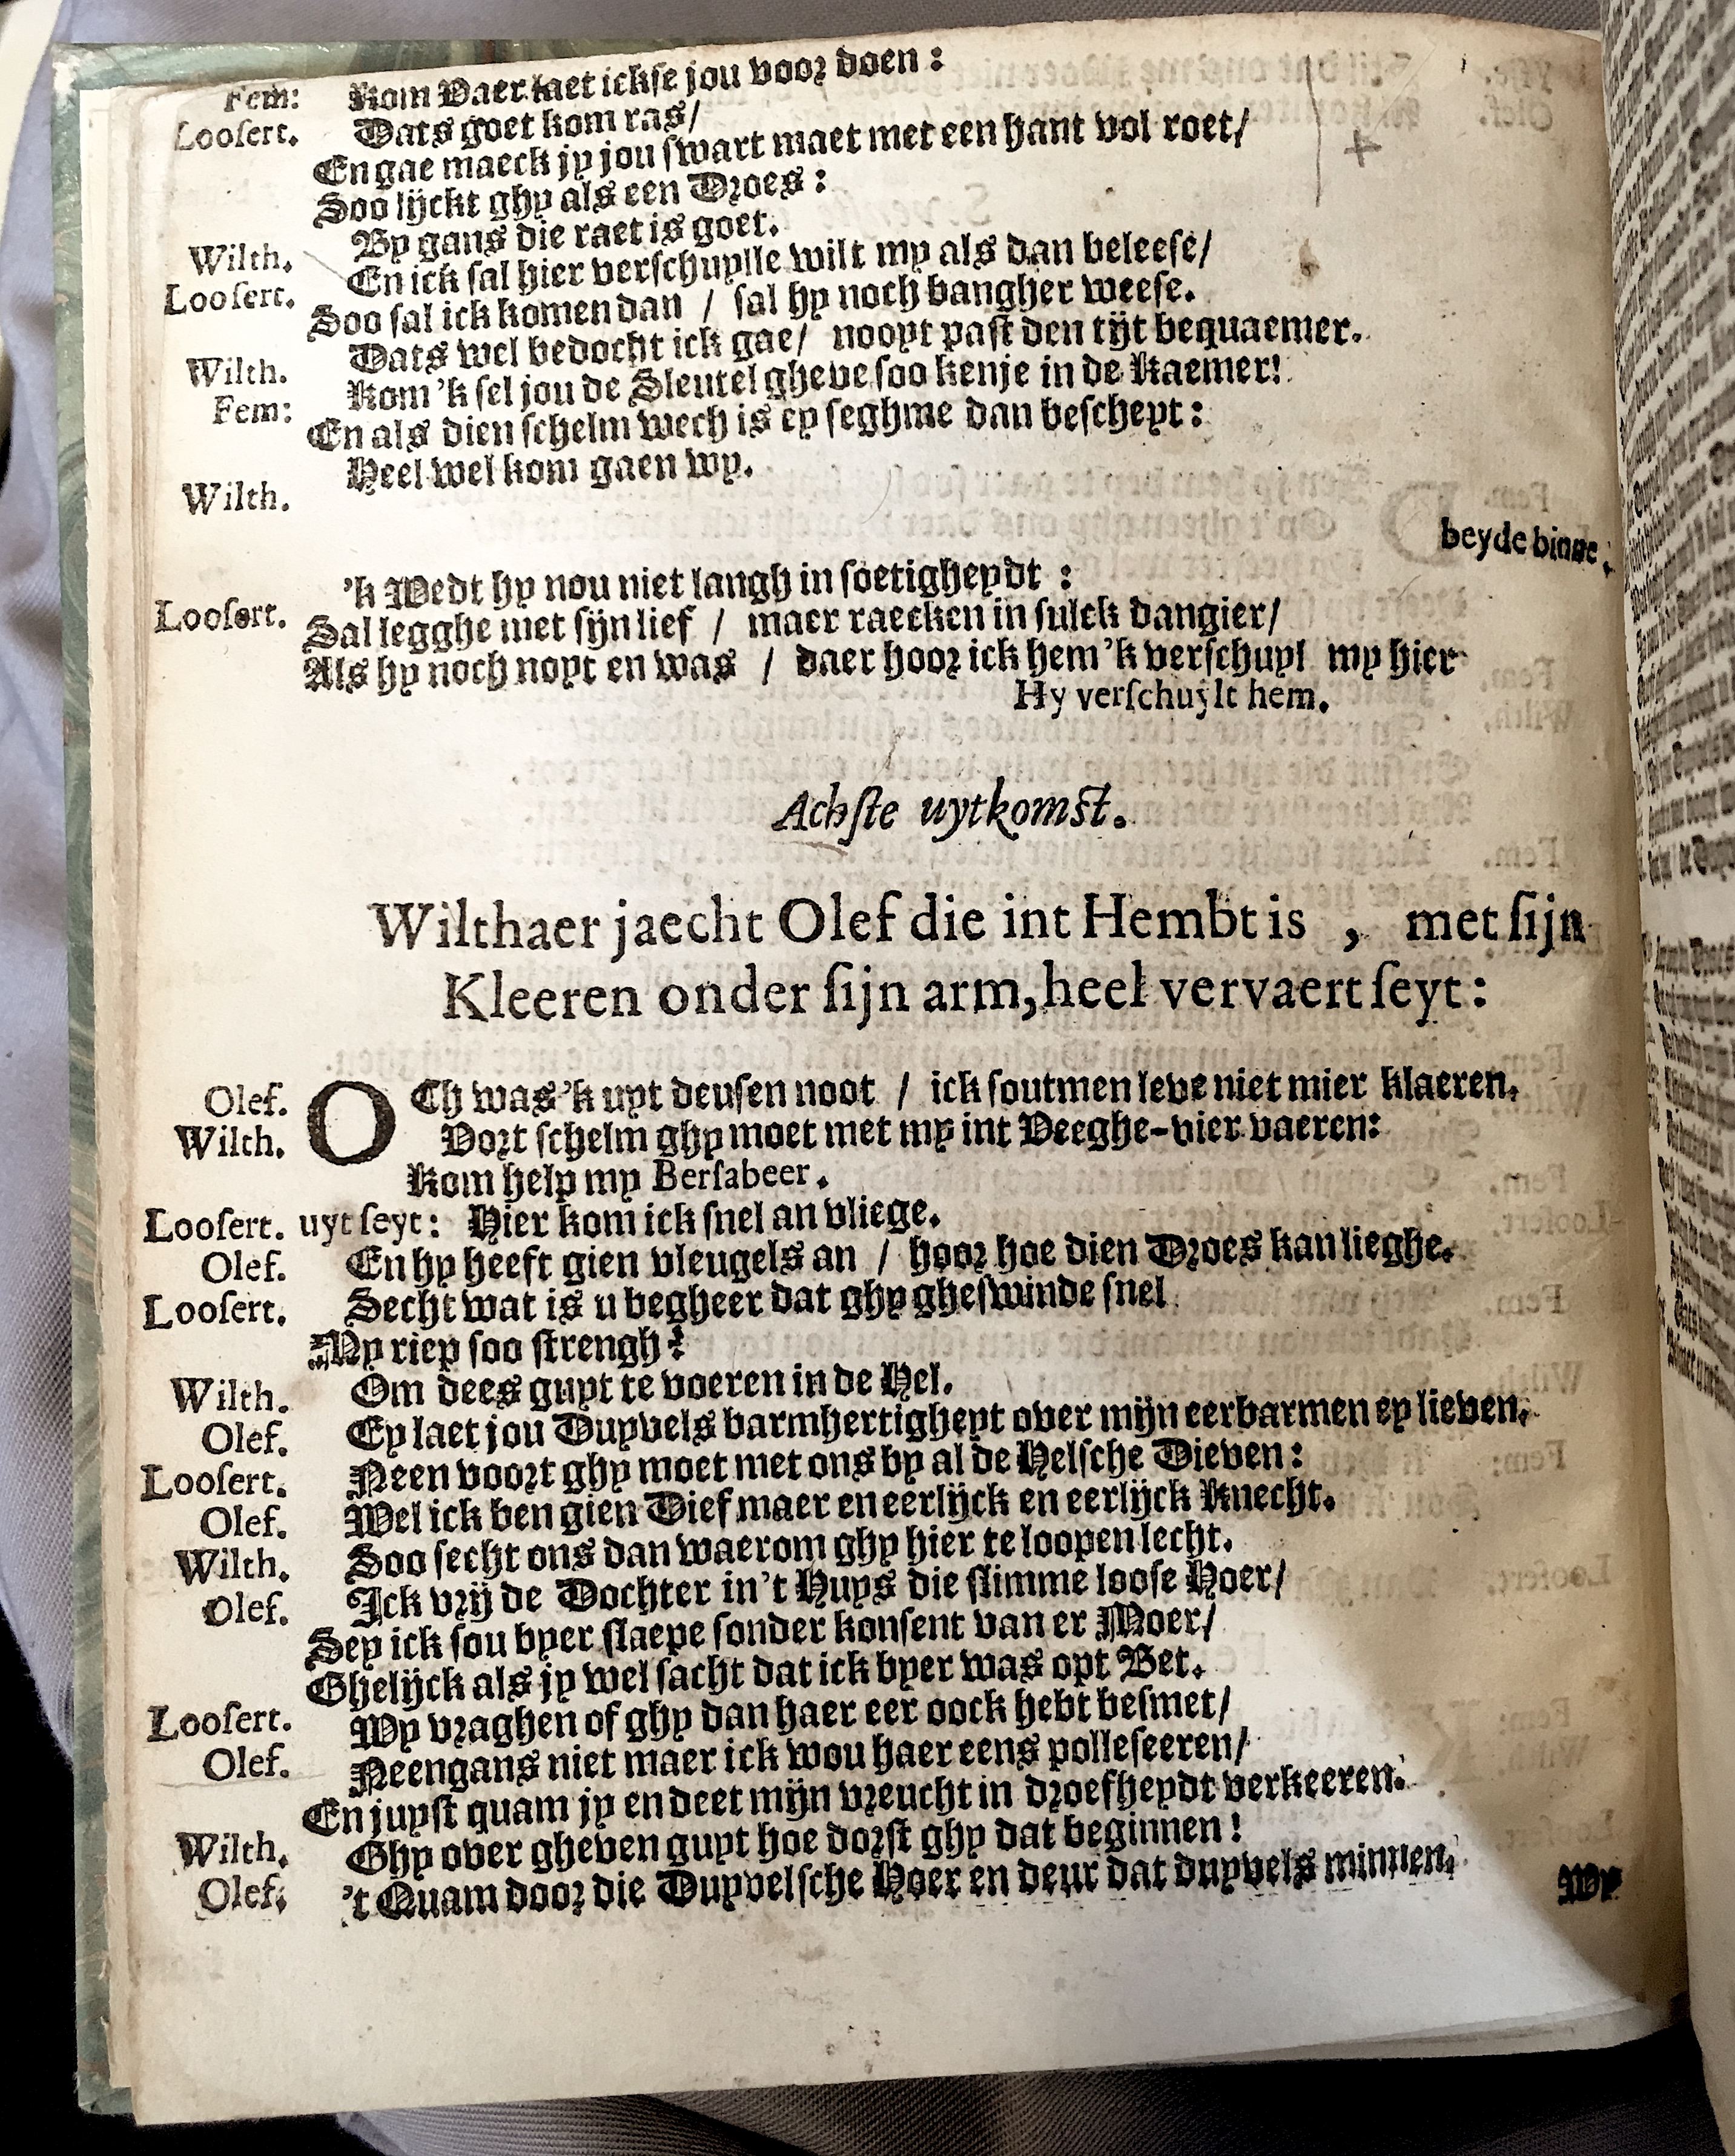 Fem: Kom Vaer laet ickse jou voor doen:
Loosert. Dats goet kom ras/
En gae maeck jy jou swart maet met een hant vol roet/
Soo lijckt ghy als een Droes:
Wilth. By gans die raet is goet.
Loosert. En ick sal hier verschuylle wilt my als dan beleese/
Soo sal ick komen dan / sal hy noch bangher weese.
Wilth. Dats wel bedocht ick gae/ nooyt past den tijt bequaemer.
Fem: Kom 'k sel jou de Sleutel gheve soo kenje in de Kaemer!
En als dien schelm wech is ey seghme dan bescheyt:
Wilth. Heel wel kom gaen wy.
beyde binne.
Loosert. 'k Wedt hy nou niet langh in soetigheydt:
Sal legghe met sijn lief / maer raecken in sulck dangier/
Als hy noch noyt en was / daer hoor ick hem 'k verschuyl my hier
Hy verschuylt hem.
Achste uytkomst.
Wilthaer jaecht Olef die int Hembt is, met sijn
Kleeren onder sijn arm, heel vervaert seyt:
Olef. OCh was 'k uyt deusen noot / ick soutmen leve niet mier klaeren.
Wilth. Vort schelm ghy moet met my int Veeghe-vier vaeren:
Kom help my Bersabeer.
Loosert. uyt seyt: Hier kom ick snel an vliege.
Olef. En hy heeft gien vleugels an / hoor hoe dien Droes kan lieghe.
Loosert. Secht wat is u begheer dat ghy gheswinde snel
My riep soo strengh?
Wilth. Om dees guyt te voeren in de Hel.
Olef. Ey laet jou Duyvels barmhertigheyt over mijn eerbarmen ey lieven.
Loosert. Neen voort ghy moet met ons by al de Helsche Dieven:
Olef. Wel ick ben gien Dief maer en eerlijck en eerlijck Knecht.
Wilth. Soo secht ons dan waerom ghy hier te loopen lecht.
Olef. Ick vrij de Dochter in't Huys die slimme loose Hoer/
Sey ick sou byer slaepe sonder konsent van er Moer/
Ghelijck als jy wel sacht dat ick byer was opt Bet.
Loosert. Wy vraghen of ghy dan haer eer oock hebt besmet/
Olef. Neen gans niet maer ick wou haer eens polleseeren/
En juyst quam jy en deet mijn vreucht in droefheydt verkeeren.
Wilth. Ghy over gheven guyt hoe dorst ghy dat beginnen!
Olef. 't Quam door die Duyvelsche Hoer en deur dat duyvels minnen.
Wy